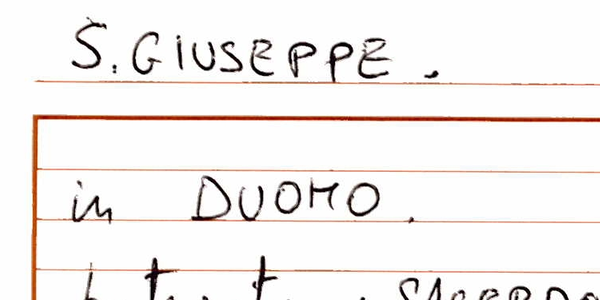 S. GIUSEPPE.
in DUOMO.